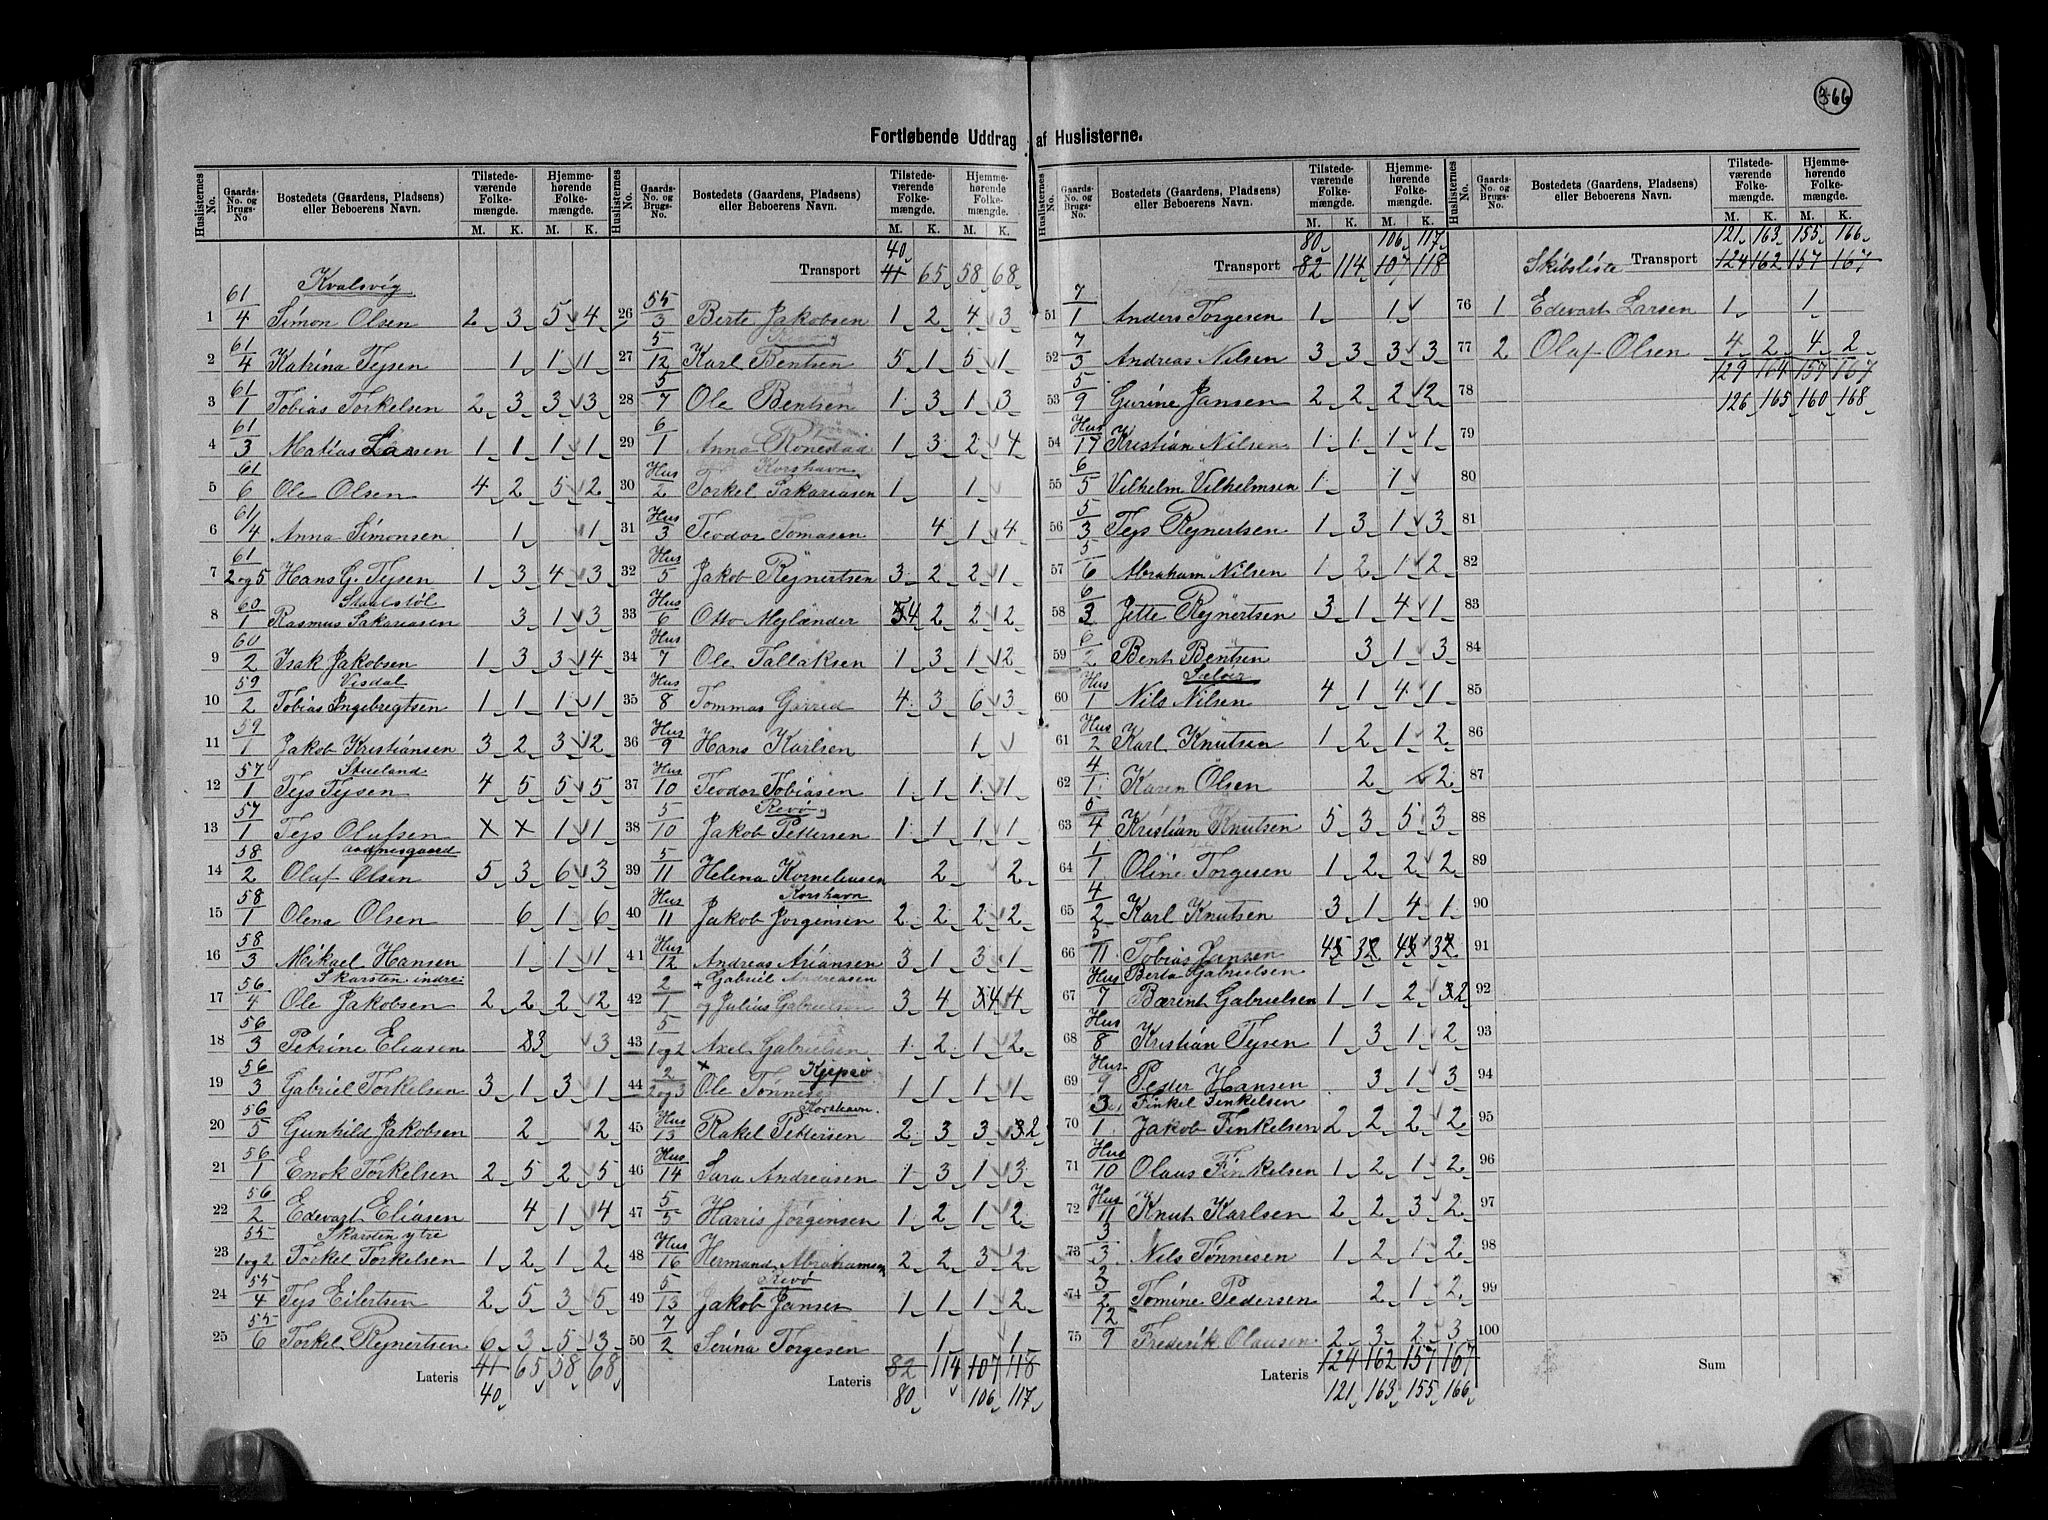 366
Fortløbende Uddrag af Huslisterne.
Huslisternes No. Gaards-No. og Brugs-No Bostedets (Gaardens, Pladsens) eller Beboerens Navn. Tilstedeværende Folkemængde. M. K. Hjemmehørende Folkemængde. M. K.
Kvalsvig
1 61/4 Simon Olsen 2 3 5 4
2 61/4 Katrina Tejsen 1 1 1
3 61/1 Tobias Torkelsen 2 3 3 3
4 61/3 Matias Larsen 1 1 1 1
5 61/6 Ole Olsen 4 2 5 2
6 61/4 Anna Simonsen 1 1
7 61/2 og 5 Hans G. Tejsen 1 3 4 3
Staalstöl
8 60/1 Rasmus Sakariasen 3 1 3
9 60/2 Isak Jakobsen 1 3 3 4
Visdal
10 59/2 Tobias Ingebregtsen 1 1 1 1
11 59/1 Jakob Kristiansen 3 2 3 2
Stueland
12 57/1 Tejs Tejsen 4 5 5 5
13 57/1 Tejs Olufsen x x 1 1
aadnesgaard
14 58/2 Oluf Olsen 5 3 6 3
15 58/1 Olena Olsen 6 1 6
16 58/3 Mikael Hansen 1 1 1
Skarsten indre
17 56/4 Ole Jakobsen 2 2 2 2
18 56/3 Petrine Eliasen 3 3
19 56/3 Gabriel Torkelsen 3 1 3 1
20 56/5 Gunhild Jakobsen 2 2
21 56/1 Enok Torkelsen 2 5 2 5
22 56/2 Edevart Eliasen 4 1 4
Skarsten ytre
23 55/1 og 2 Torkel Torkelsen 1 2 1 2
24 55/4 Tejs Eilertsen 2 5 3 5
25 55/6 Torkel Rejnertsen 6 3 5 3
Lateris 41 65 58 68
40
Huslisternes No. Gaards-No. og Brugs-No. Bostedets (Gaardens, Pladsens) eller Beboerens Navn. Tilstedeværende Folkemængde. M. K. Hjemmehørende Folkemængde. M. K.
40
Transport 41 65 58 68
26 55/3 Berte Jakobsen 1 2 4 3
27 5/12 Karl Bentsen 5 1 5 1
28 5/7 Ole Bentsen 1 3 1 3
29 6/1 Anna Rönestad 1 3 2 4
Korshavn
30 Hus/2 Torkel Sakariasen 1 1
31 Hus/3 Teodor Tomasen 4 1 4
32 Hus/5 Jakob Rejnertsen 3 2 2 1
33 Hus/6 Otto Mejlænder 4 2 2 2
34 Hus/7 Ole Tallaksen 1 3 1 2
35 Hus/8 Tommas Garred 4 3 6 3
36 Hus/9 Hans Karlsen 1
37 Hus/10 Teodor Tobiasen 1 1 1 1
Revø
38 5/10 Jakob Pettersen 1 1 1 1
39 5/11 Helena Korneliusen 2 2
Korshavn
40 Hus/11 Jakob Jorgensen 2 2 2 2
41 Hus/12 Andreas Ariansen 3 1 3 1
Gabriel Andreasen
42 2/1 og Julius Gabrielsen 3 4 4 4
43 5/1 og 2 Axel Gabrielsen 1 2 1 2
Kjepsø
44 2/2 og 3 Ole Tønnes 1 1 1 1
Korshavn.
45 Hus/13 Rakel Pettersen 2 3 3 2
46 Hus/14 Sara Andreasen 1 3 1 3
47 5/5 Harris Jørgensen 1 2 1 2
48 Hus/16 Hermand Abrahamsen 2 2 3 2
Revø
49 5/13 Jakob Jansen 1 1 1 2
50 7/2 Serina Torgesen 1 1
Lateris 82 114 107 118
80 106 117
Huslisternes No. Gaards-No. og Brugs-No. Bostedets (Gaardens, Pladsens) eller Beboerens Navn. Tilstedeværende Folkemængde. M. K. Hjemmehørende Folkemængde. M. K.
80 106 117
Transport 82 114 107 118
51 7/1 Anders Torgesen 1 1
52 7/3 Andreas Nilsen 3 3 3 3
53 5/9 Gurine Jansen 2 2 2 2
54 Hus/17 Kristian Nilsen 1 1 1 1
55 6/5 Vilhelm Vilhelmsen 1 1
56 5/3 Tejs Rejnertsen 1 3 1 3
57 5/6 Abraham Nilsen 1 2 1 2
58 6/3 Jette Rejnertsen 3 1 4 1
59 6/2 Bent Bentsen 3 1 3
Sælør
60 Hus/1 Nils Nilsen 4 1 4 1
61 Hus/2 Karl Knutsen 1 2 1 2
62 4/1 Karen Olsen 2 2
63 5/4 Kristian Knutsen 5 3 5 3
64 1/1 Oline Torgesen 1 2 2 2
65 4/2 Karl Knutsen 3 1 4 1
66 5/11 Tobias Jansen
Berta Gabrielsen
67 Hus/7 Bærent Gabrielsen 1 1 2 2
68 Hus/8 Kristian Tejsen 1 3 1 2
69 Hus/9 Peder Hansen 3 1 3
Finkel Finkelsen
70 3/1 Jakob Finkelsen 2 2 2 2
71 Hus/10 Olaus Finkelsen 1 2 1 2
72 Hus/11 Knut Karlsen 2 2 3 2
73 3/3 Nils Tønnesen 1 2 1 2
74 3/2 Tomine Pedersen 2 1 2
75 12/9 Frederik Olausen 2 3 2 3
Lateris 124 162 157 167
121 163 155 166
Huslisternes No. Gaards-No. og Brugs-No. Bostedets (Gaardens, Pladsens) eller Beboerens Navn. Tilstedeværende Folkemængde. M. K. Hjemmehørende Folkemængde. M. K.
121 163 155 166
Skibsliste Transport 124 162 157 167
76 1 Edevart Larsen 1 1
77 2 Oluf Olsen 4 2 4 2
129 164 157 167
78 126 165 160 168
79
80
81
82
83
84
85
86
87
88
89
90
91
92
93
94
95
96
97
98
99
100
Sum